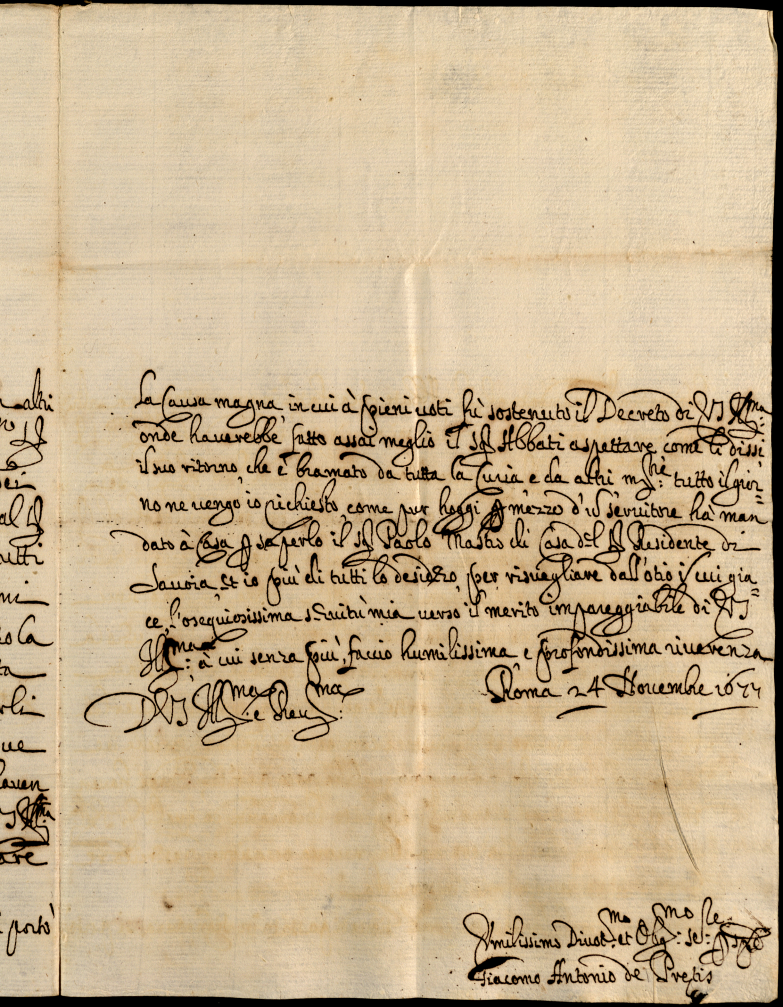 La Causa magna in cui à pieni voti fù sostenuto il Decreto di VS Ill:ma
onde haverebbe fatto assai meglio il Sr Abbati aspettare come li dissi
il suo ritorno, che è bramato da tutta la Curia e da altri tutto il gior=
no ne vengo io richiesto, come pur hoggi p mezzo d'un servitore ha man=
dato à Casa p saperlo il Sr Paolo di Casa del Sr Residente di
Savoia et io più di tutti lo desidero, per risvegliare dall'otio in cui gia=
ce l'osequiosissima servitù mia verso il merito impareggiabile di VS
Ill:ma à cui senza più, faccio humilissima e profondissima riverenza
Roma 24 Novembre 1677
D VS Ill:ma e Rev:ma
Umilissimo Divot:mo et Obg:mo Se:re
Giacomo Antonio de Pretis
altri
al
tutti
ni
io la
ta
rli
ue
haven
VS Ill:ma
are
portò